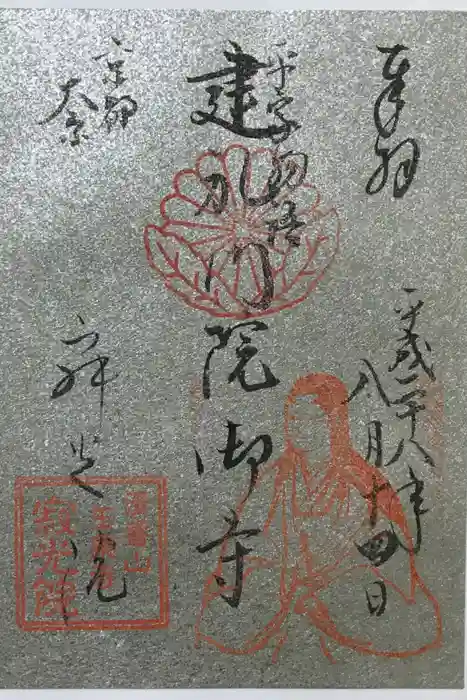 奉拝
平成二十八年
八月十四日
平家物語
建礼門院御寺
京都
大原
寂光院
清香山
玉泉寺
寂光院